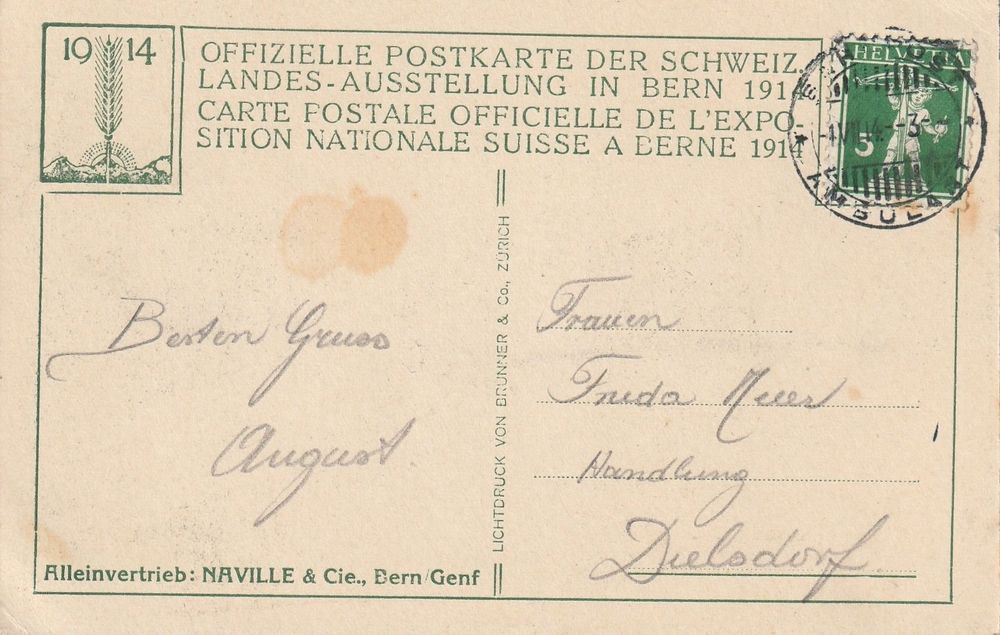 1914
OFFIZIELLE POSTKARTE DER SCHWEIZ.
LANDES-AUSSTELLUNG IN BERN 1914
CARTE POSTALE OFFICIELLE DE L'EXPO-
SITION NATIONALE SUISSE A BERNE 1914
HELVETIA
5
AMBULANT
Besten Gruss
August.
LICHTDRUCK VON BRUNNER & Co., ZÜRICH
Frauen
Frieda Meier
Handlung
Dielsdorf
Alleinvertrieb: NAVILLE & Cie., Bern/Genf